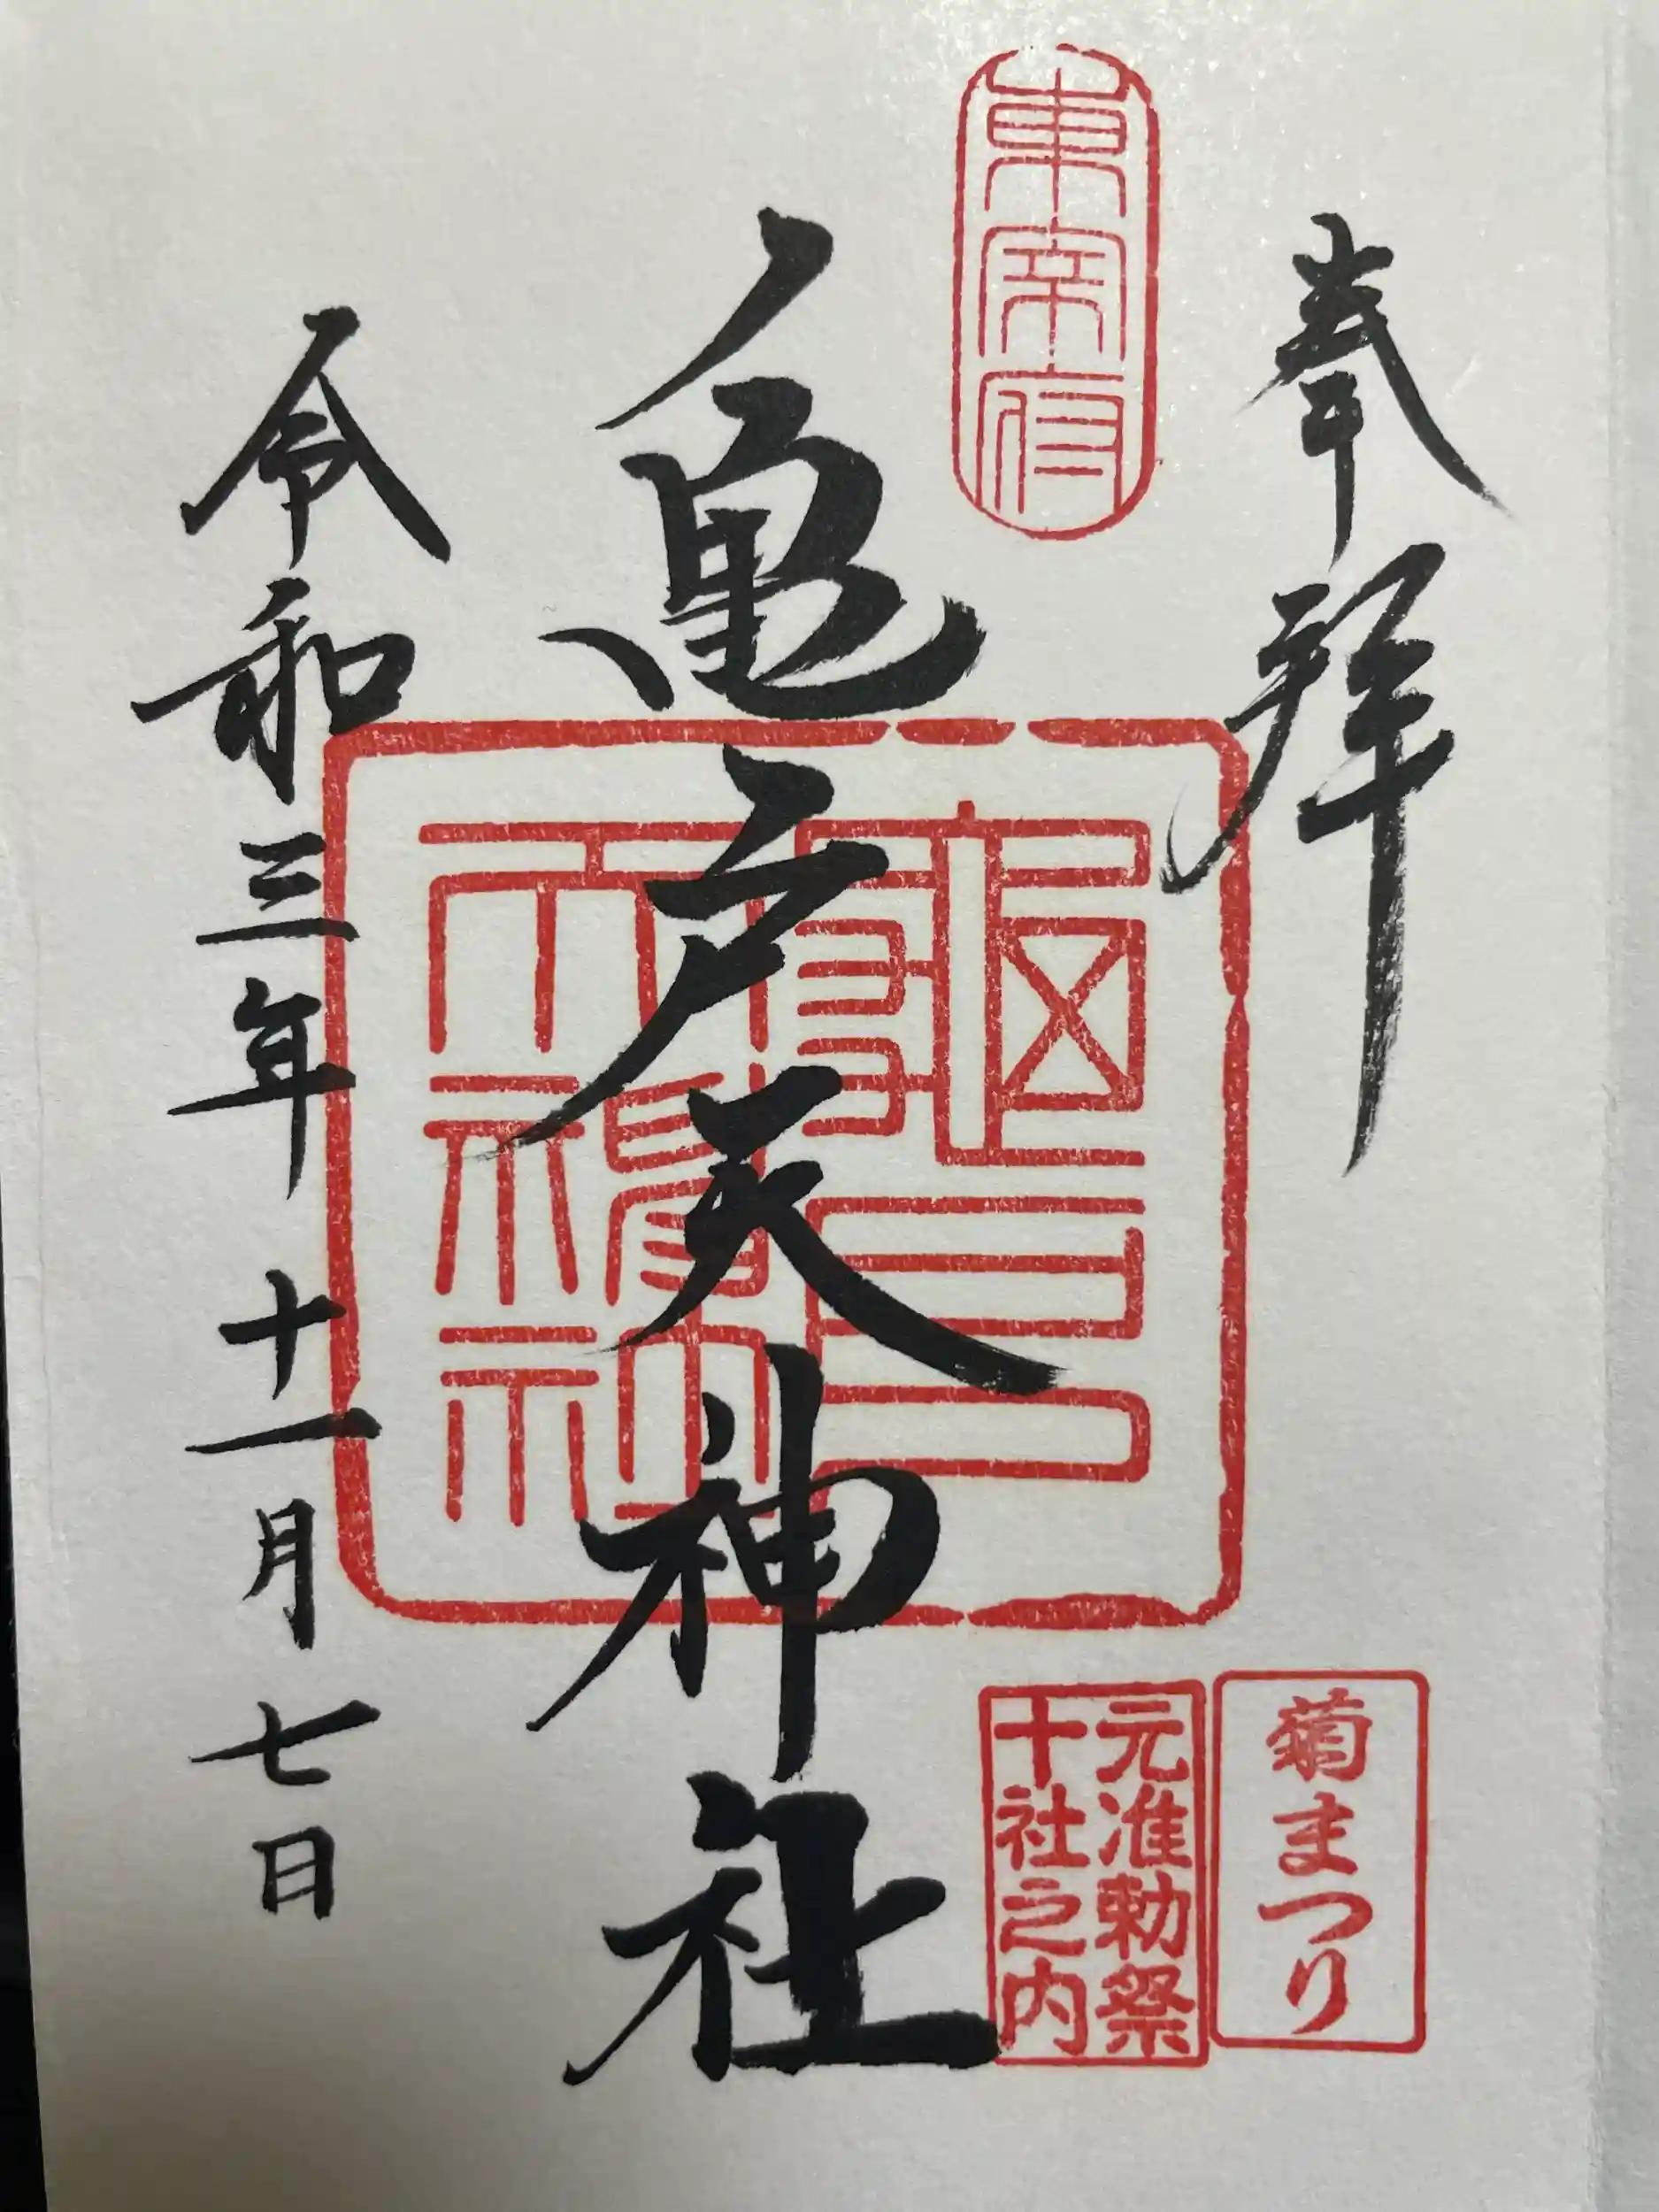 奉拝
東宰府
亀戸天神社
亀戸天神社
菊まつり
元准勅祭
十社之内
令和三年十一月七日